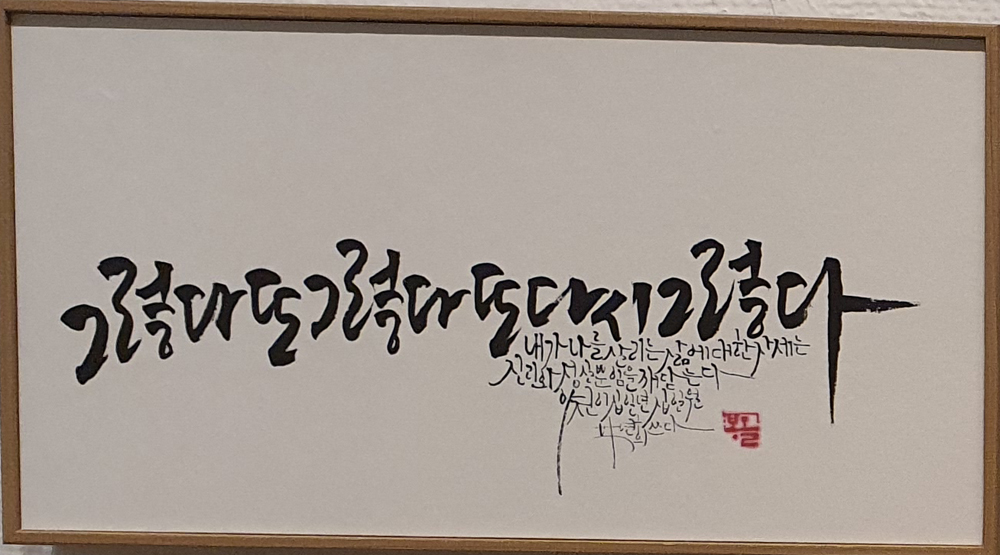 그렇다 또 그렇다 또 다시 그렇다
내가 나를 살리는 삶에 대한 자세는
진리와 성실뿐임을 깨닫는다
이천이십일년 십일월
쓰다